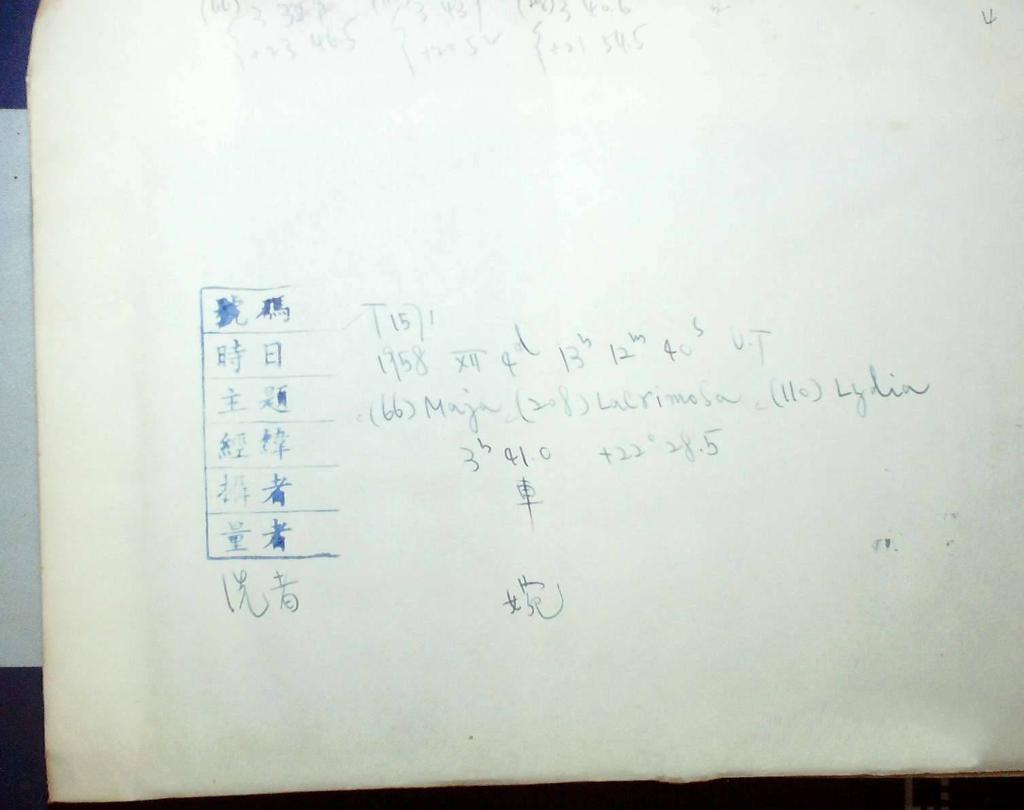 (66) 3 39.7 3 43 (208) 3 40.6
+23 46.5 +20 52 +21 54.5
號碼 T1571
時日 1958 XII 4d 13h 12m 40s U.T
主題 (66) Maja (208) Lacrimosa (110) Lydia
經緯 3h 41.0 +22° 28.5
攝者 車
量者
洗者 婉